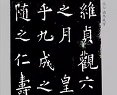 維貞觀六
之月皇
乎九成之
隨之仁壽